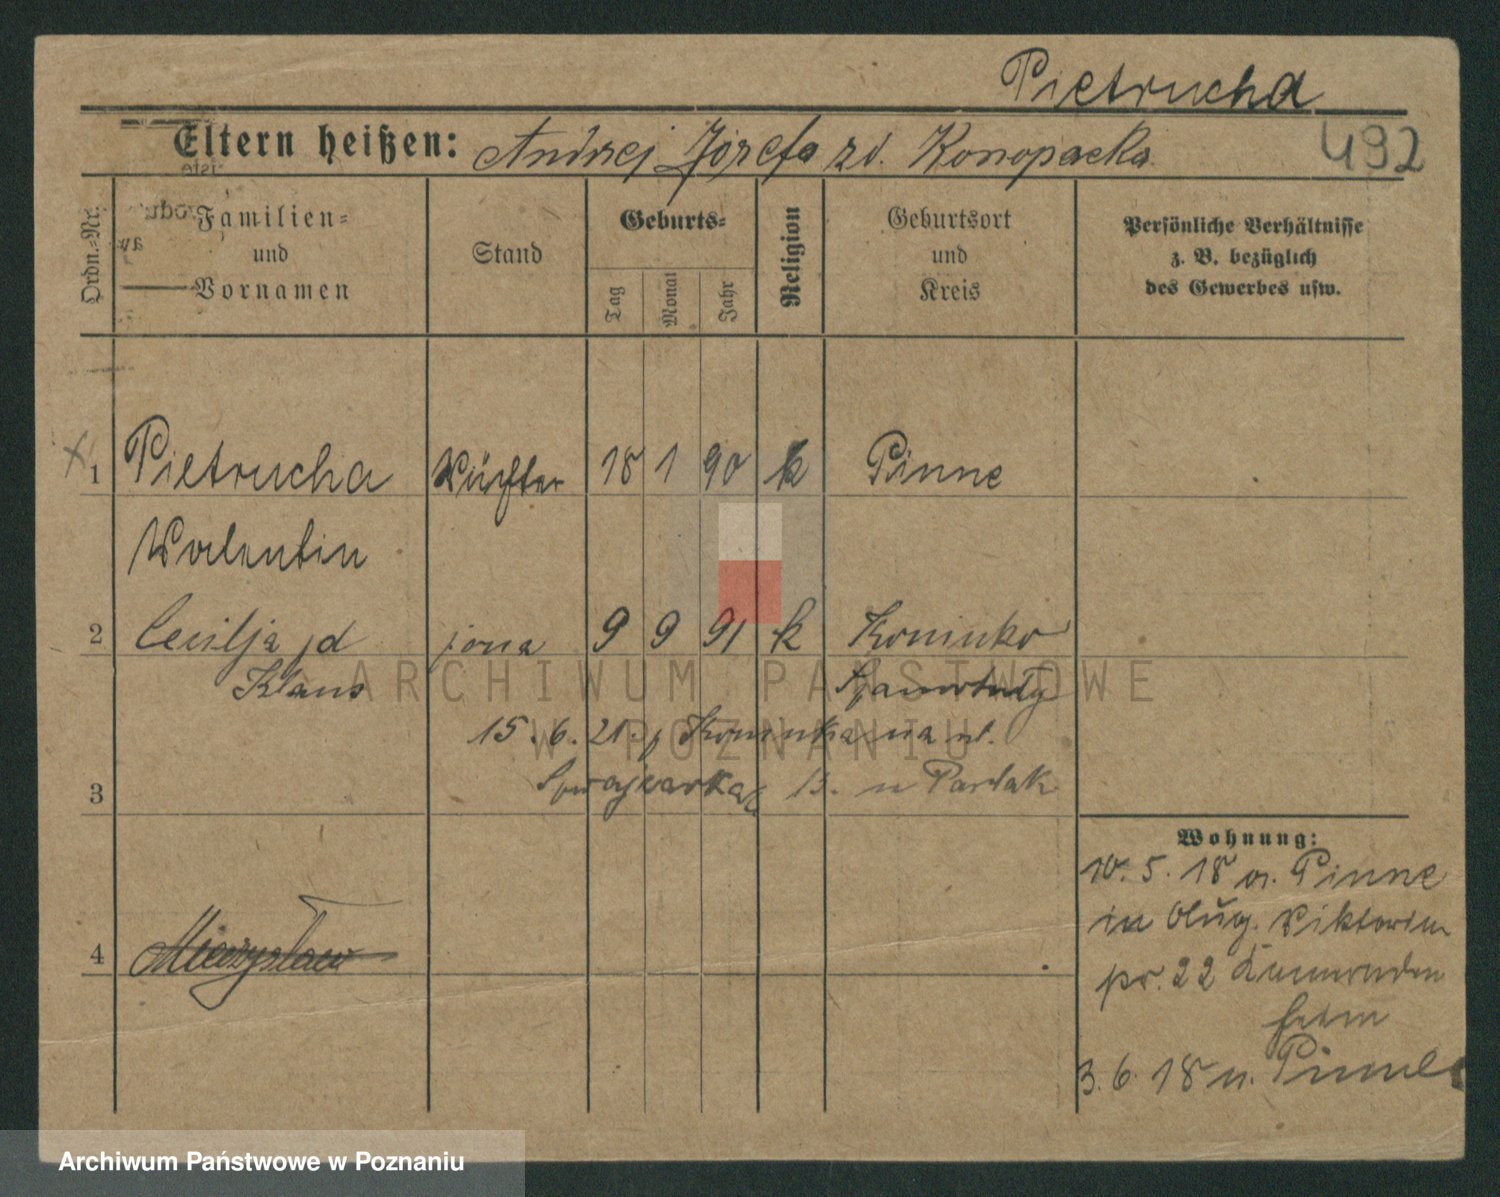 Pietrucha
Eltern heißen: Andrzej Józefa zd. Konopacka
492
Ordn.=Nr.
Familien=
und
Vornamen
Stand
Geburts=
Tag
Monat
Jahr
Religion
Geburtsort
und
Kreis
Persönliche Verhältnisse
z. B. bezüglich
des Gewerbes usw.
1 Pietrucha 18 1 90 k Pinne
Valentin
2 Cecilja zd żona 9 9 91 k Koninko
Klaus Szamotuły
15. 6. 21. z Koninka na ul.
3 13. u Pawlak
4 Mieczysław
Wohnung:
10. 5. 18 v. Pinne
in Viktoria
pr. 22
3. 6. 18 n. Pinne
ARCHIWUM PAŃSTWOWE
W POZNANIU
Archiwum Państwowe w Poznaniu